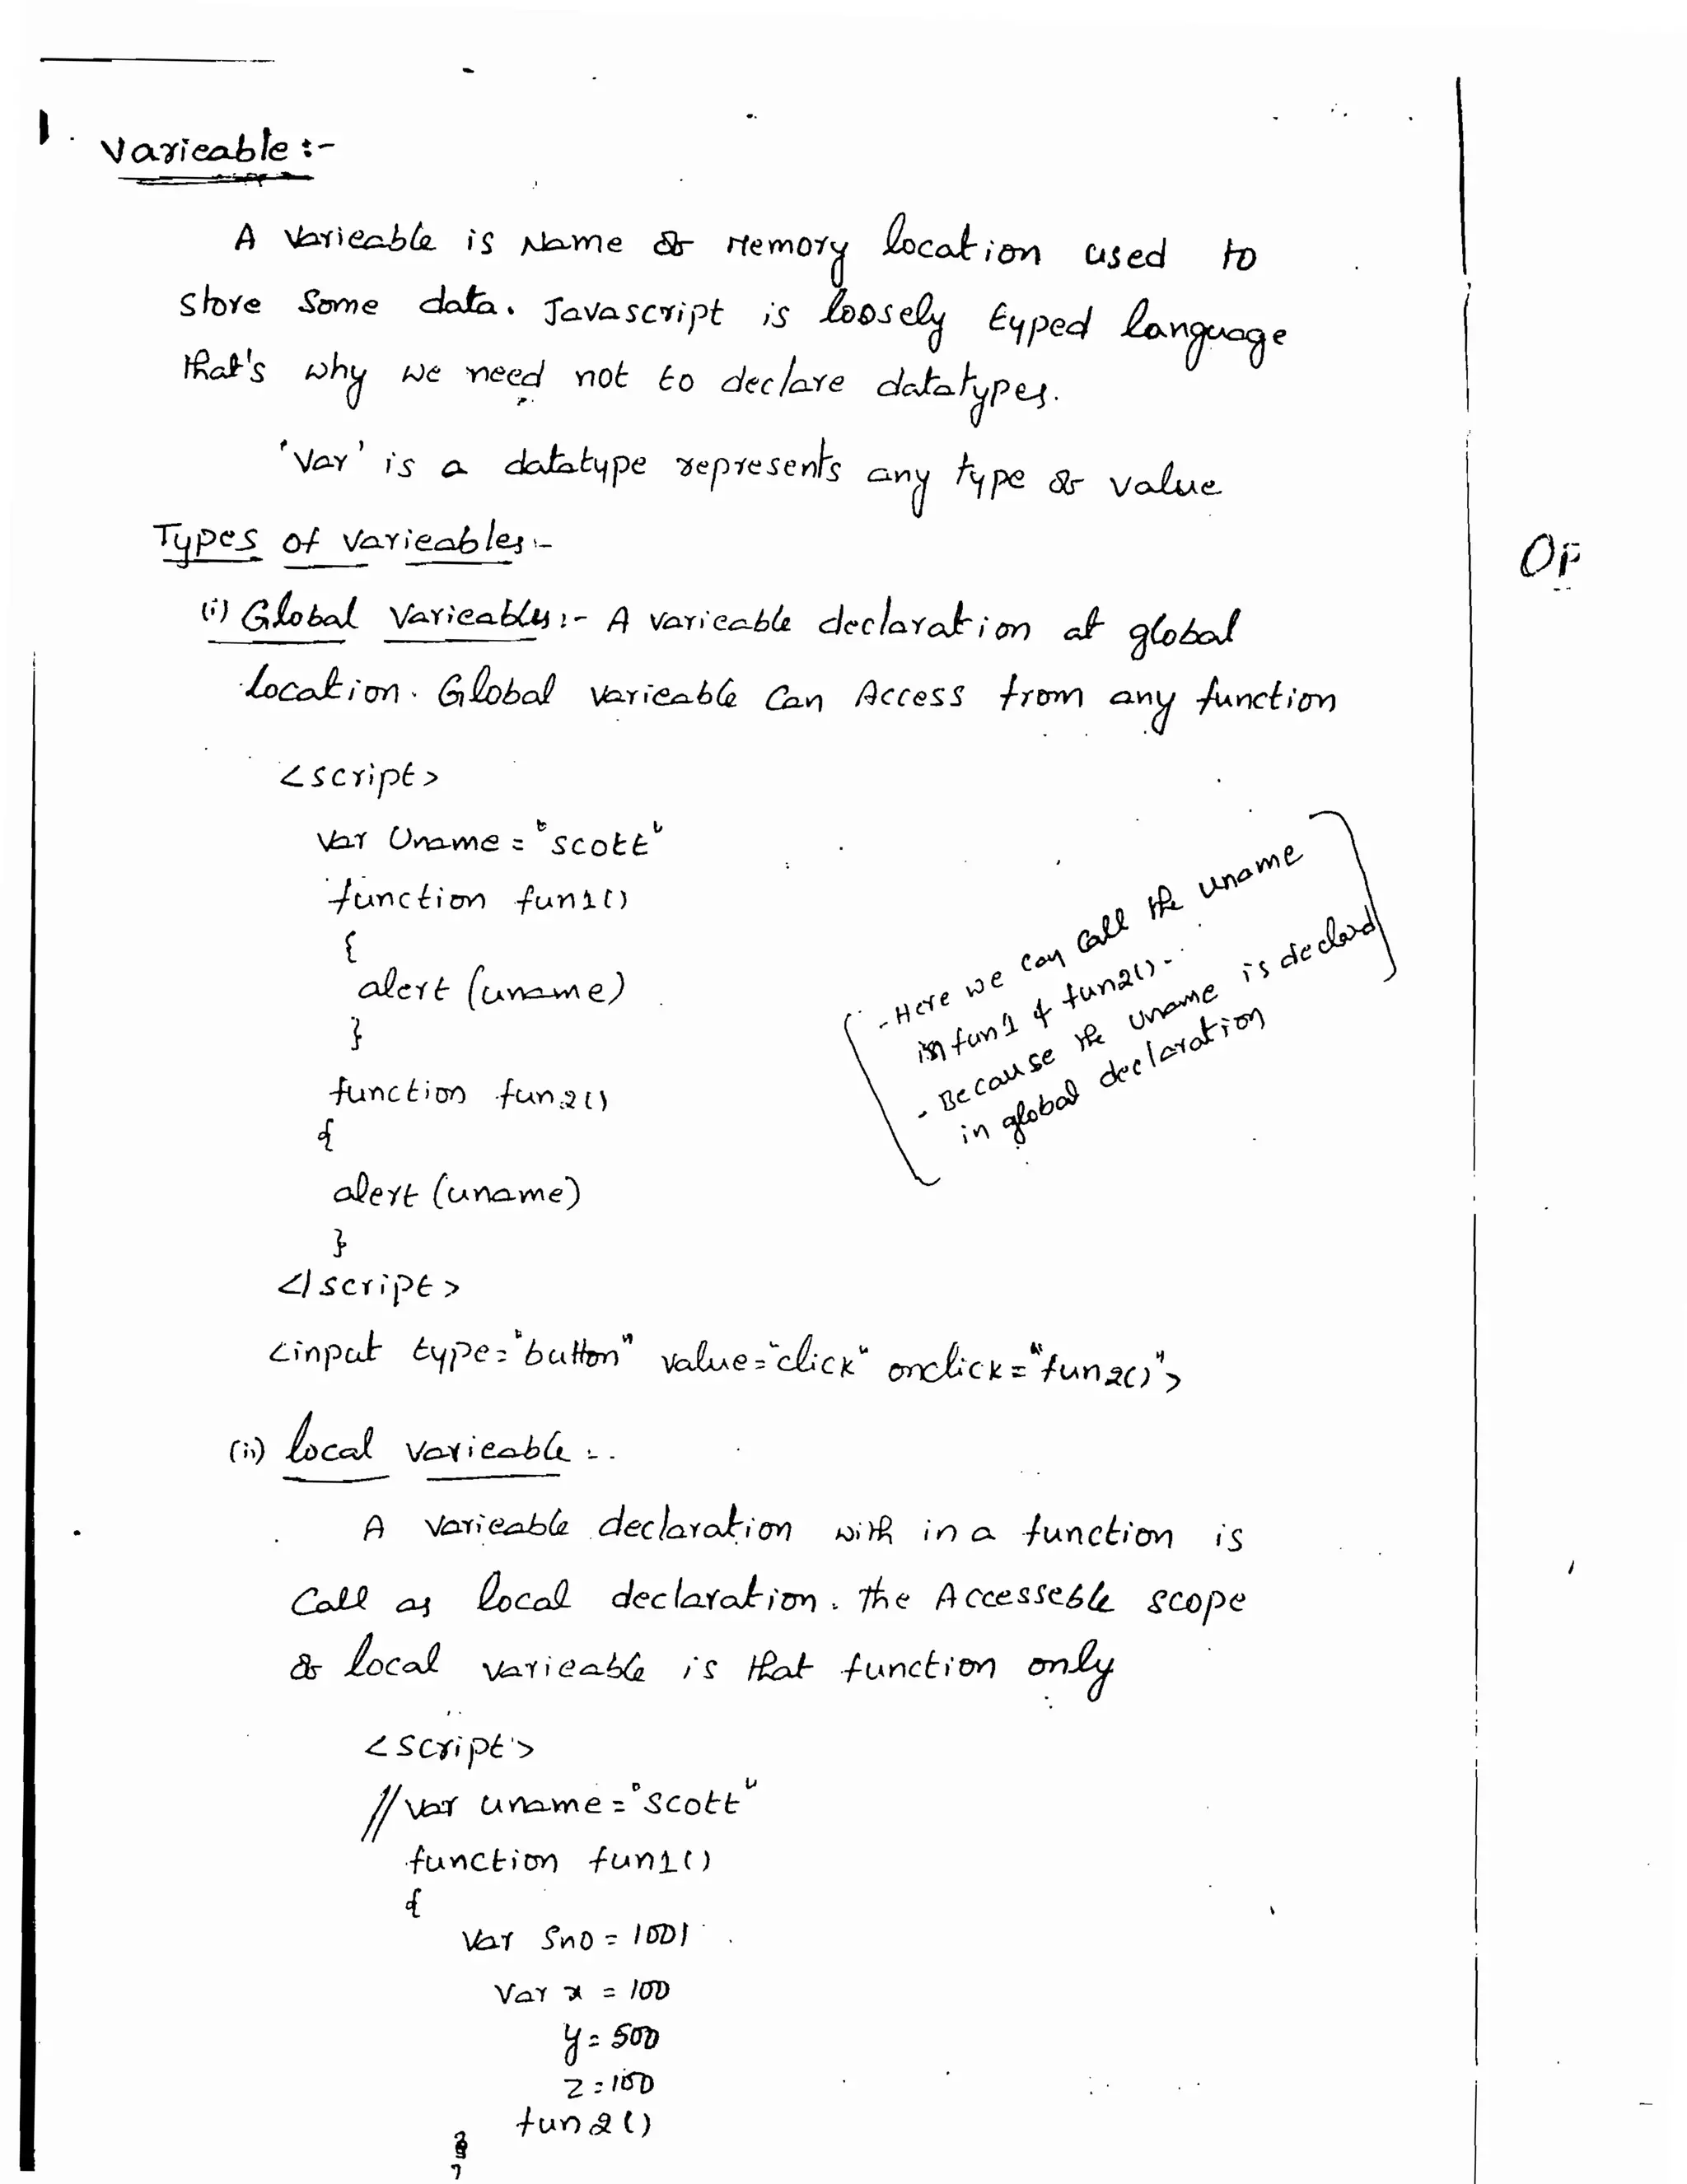 Varieable :-
A Varieable is Name & Memory location used to
store Some data. Javascript is loosely typed language
that's why we need not to declare datatypes.
'Var' is a datatype represents any type & value
Types of varieables :-
(i) Global Varieables :- A varieable declaration at global
location. Global varieable Can Access from any function
<script>
Var Uname = "scott"
function fun1()
{
alert (uname)
}
function fun2()
{
alert (uname)
}
</script>
- Here we can call the uname
in fun1 & fun2().
- Because the uname is declard
in global declaration
<input type="button" value="click" onclick="fun2()">
(ii) local varieable :-
A varieable declaration with in a function is
Call as local declaration. the Accesseble scope
& local varieable is that function only
<script>
//var uname = "scott"
function fun1()
{
Var Sno = 1001
Var x = 100
y = 500
z = 100
fun2()
}
OP